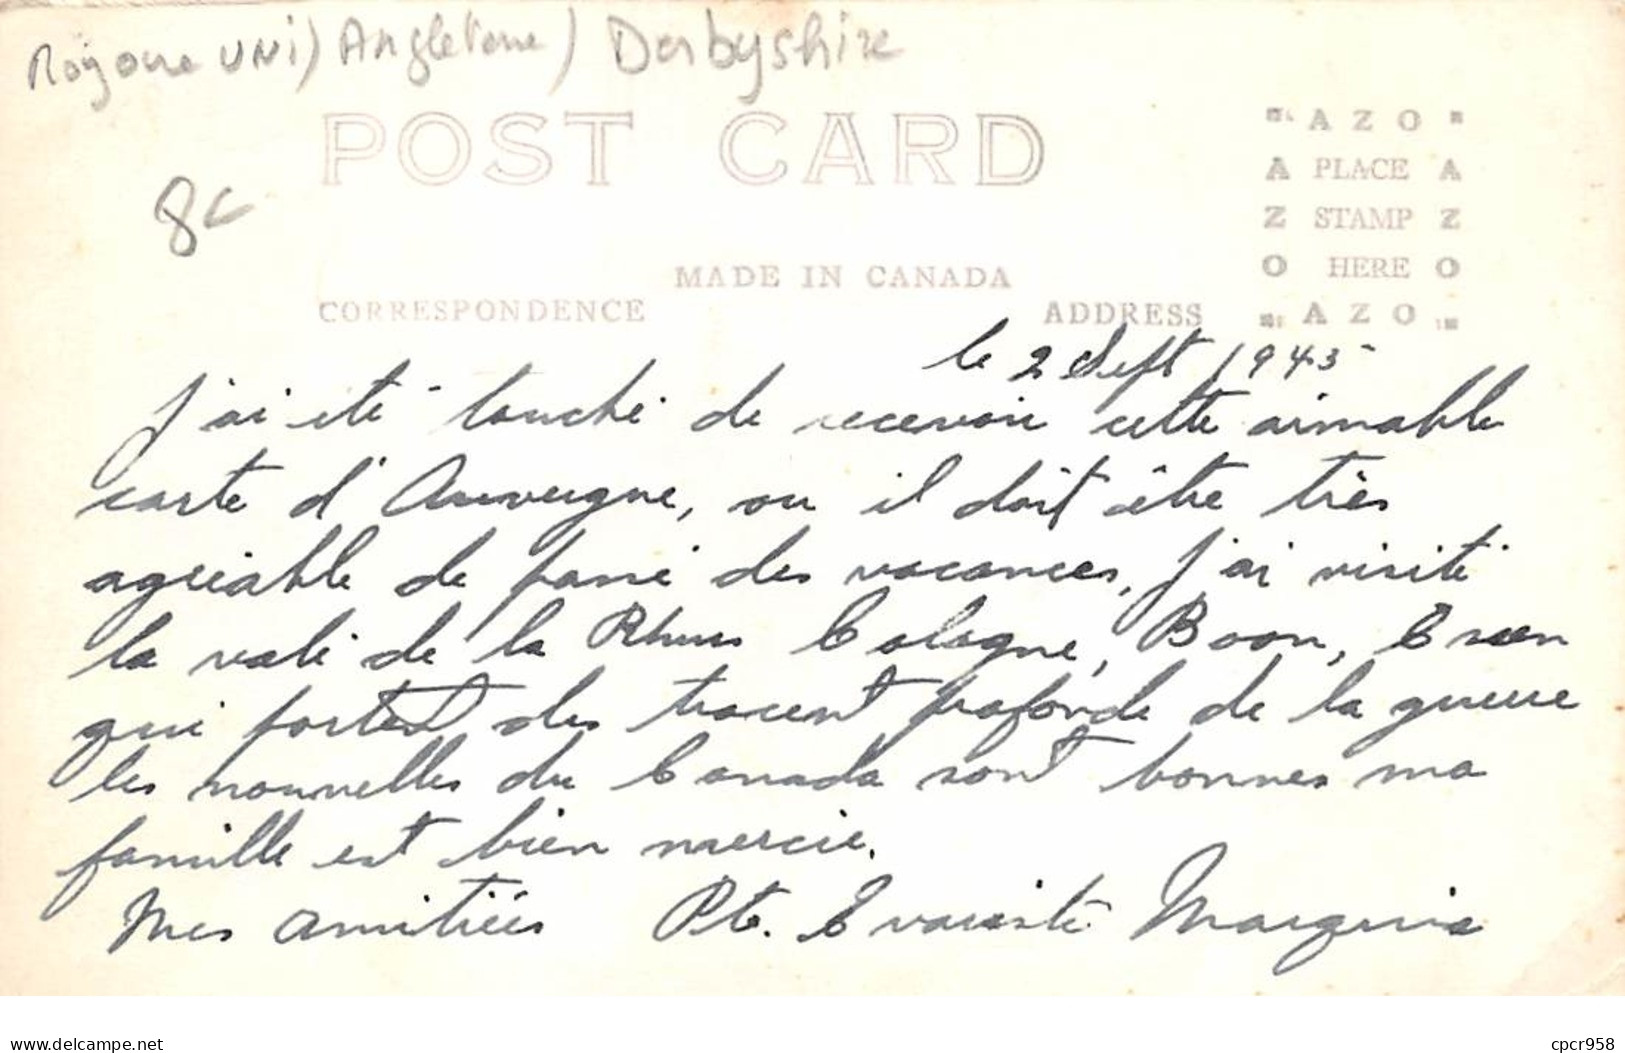 Royaume UNI) Angleterre) Derbyshire
POST CARD
"AZO"
A PLACE A
Z STAMP Z
O HERE O
"AZO"
8€
MADE IN CANADA
CORRESPONDENCE ADDRESS
le 2 Sept 1945
J'ai ete touché de recevoir cette aimable
carte d'Auvergne, ou il doit être très
agréable de passé des vacances, J'ai visité
la valé de la Cologne, Boon,
qui portent des tracent profonde de la guerre
les nouvelles du Canada sont bonnes ma
famille est bien mercie.
Mes amitiées Pte. Evariste
delcampe.net
cpcr958